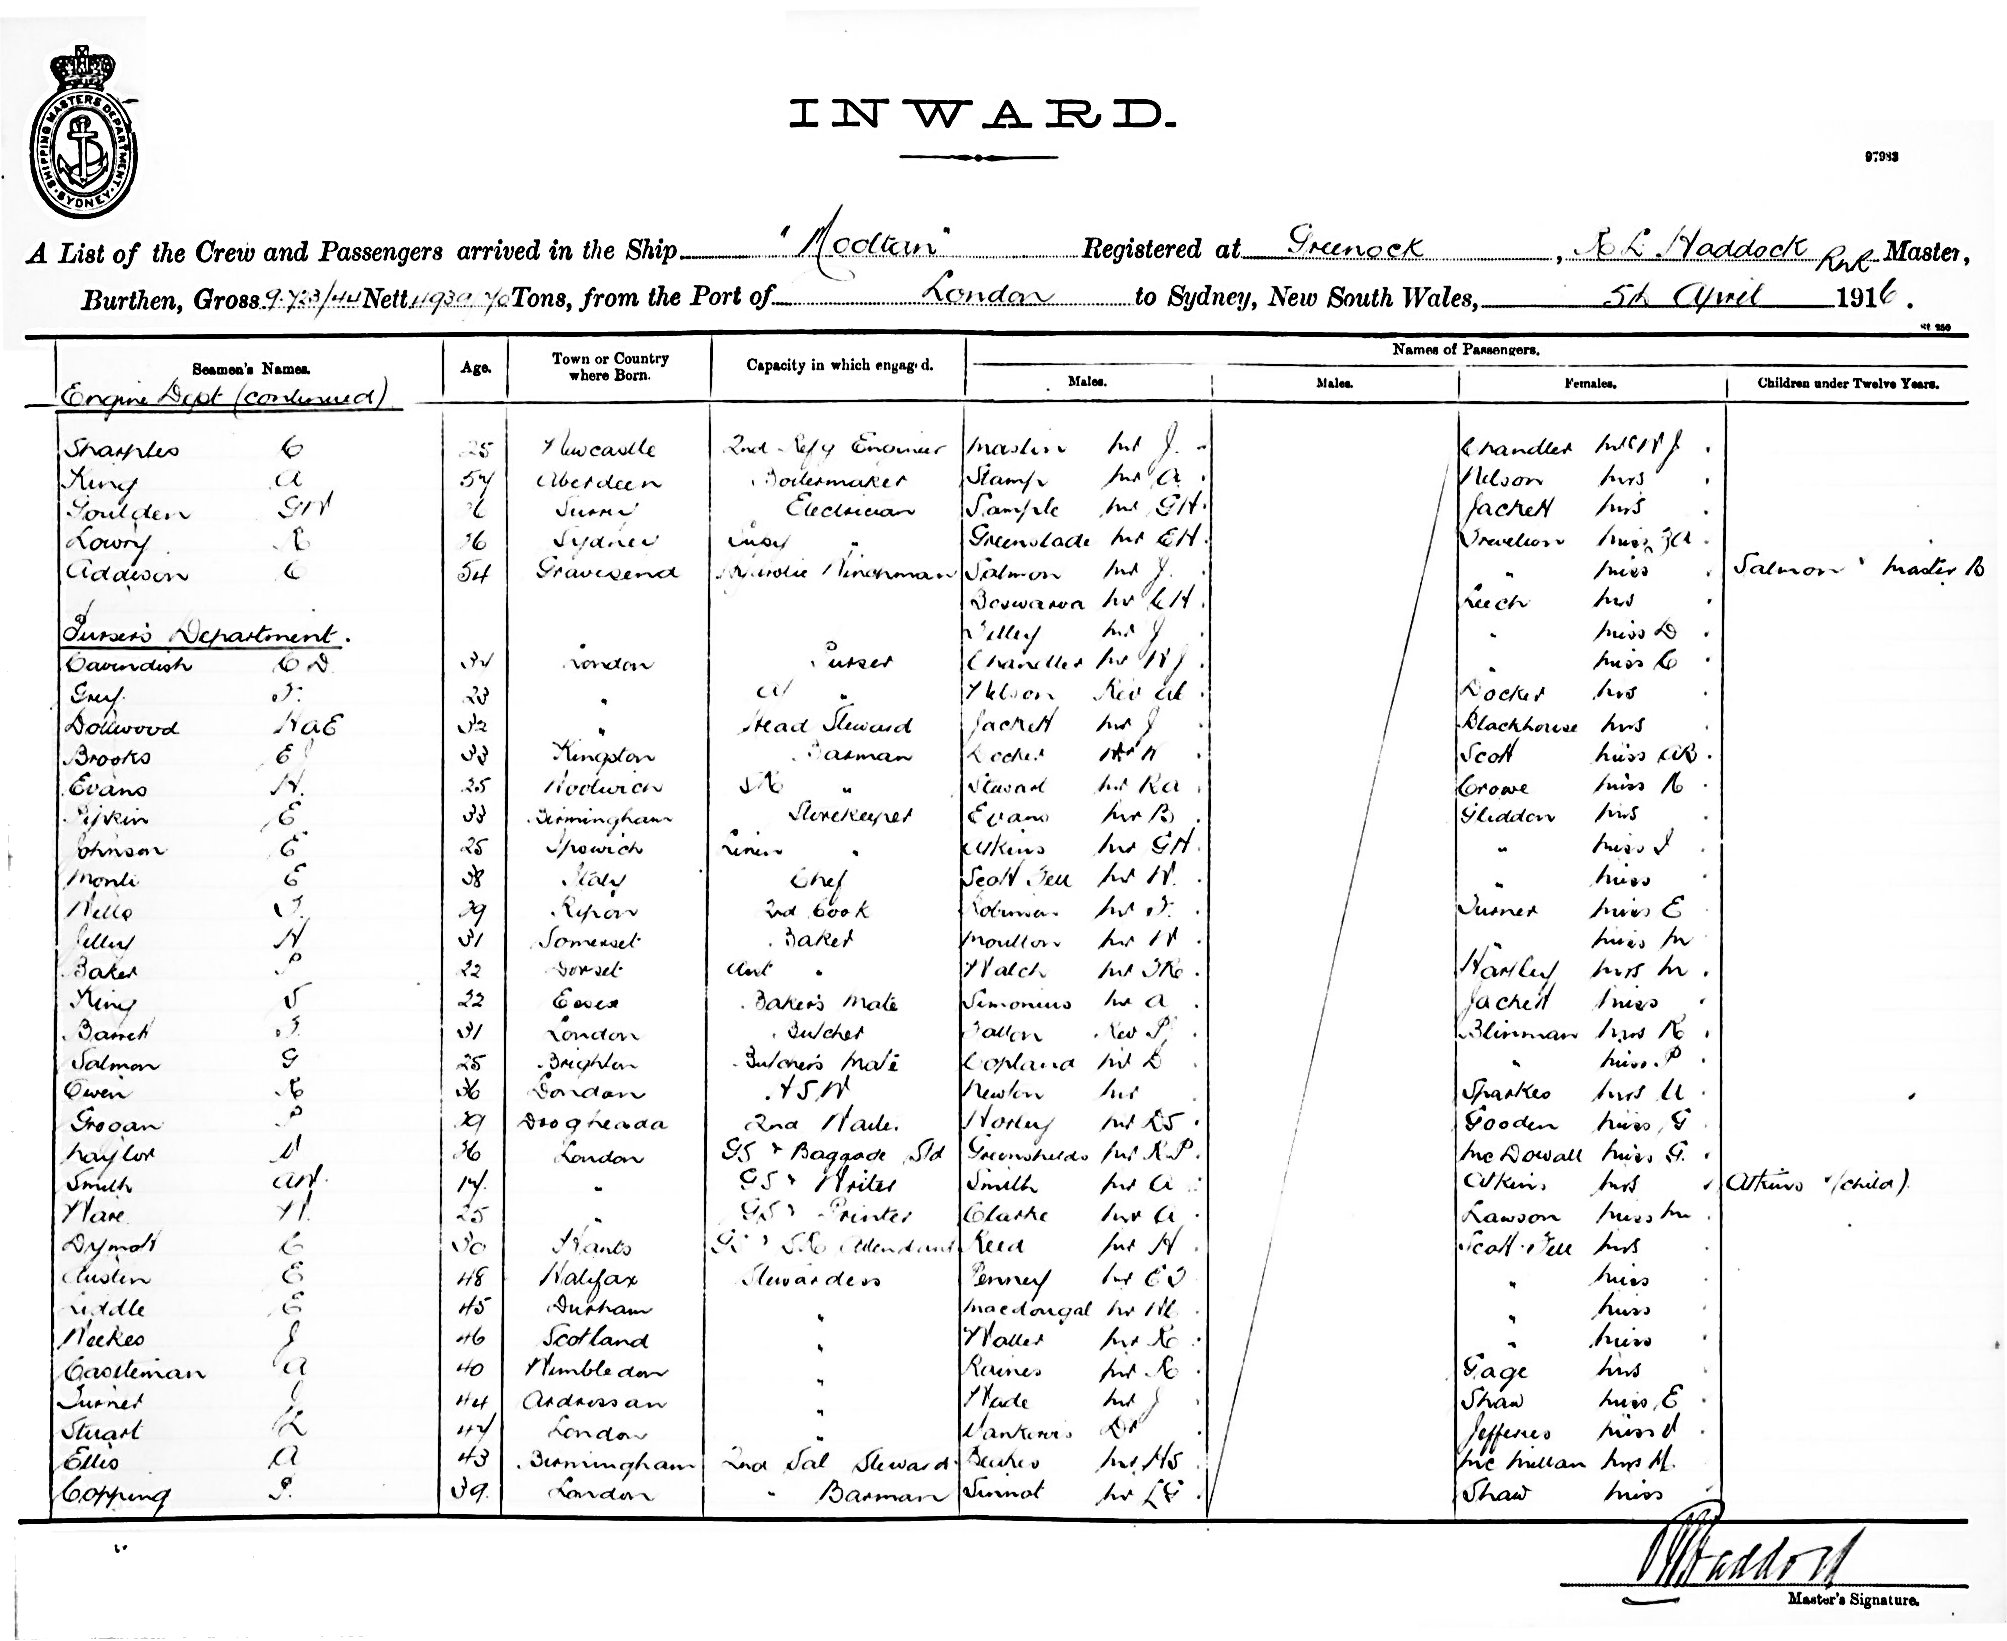 SHIPPING MASTERS DEPARTMENT · SYDNEY ·
INWARD.
97983
A List of the Crew and Passengers arrived in the Ship "Mooltan" Registered at Greenock, Haddock RNR Master,
Burthen, Gross 9723/44 Nett Tons, from the Port of London to Sydney, New South Wales, 5th April 1916.
Seamen's Names. Age. Town or Country where Born. Capacity in which engaged. Names of Passengers.
Males. Males. Females. Children under Twelve Years.
Engine Dept (continued)
Sharples C 25 Newcastle 2nd Refg Engineer Maslin Mr J. Chandler Mrs W J
King A 57 Aberdeen Boilermaker Stamp Mr A Nelson Mrs
Goulden GW Surrey Electrician Sample Mr GH Jackett Mrs
Lowry R 26 Sydney " Greenslade Mr EH Miss
Addison C 54 Gravesend Winchman Salmon Mr J. " Miss Salmon Master B
Boswarva Mr CH Leech Mrs
Purser's Department. Tilley Mr J " Miss D
Cavendish C D London Purser Chandler Mr W J " Miss C
Grey T. 23 " " Nelson Rev Docker Mrs
Dollwood HAE 32 " Head Steward Jackett Mr J Blackhouse Mrs
Brooks E J 33 Kingston Barman Docker W Scott Miss AB
Evans H. 25 Woolwich SR " Steward Mr RA Crowe Miss R
Pipkin E 33 Birmingham Storekeeper Evans Mr B Gliddon Mrs
Johnson E 25 Ipswich Linen " Atkins Mr GH " Miss I
Monti E 38 Italy Chef Scott Fell Mr W. " Miss
Wells T. 29 Ripon 2nd Cook Robinson Mr T. Turner Miss E
Jelley H 31 Somerset Baker Moulton Mr W " Miss M
Baker P 22 Dorset Asst " Walch Mr Hartley Mrs M
King S 22 Essex Baker's Mate Simonius Mr A Jackett Miss
Barrett T. 31 London Butcher Rev P. Blinman Mrs R
Salmon G 25 Brighton Butcher's Mate Copland Mr D " Miss P
Owen R 36 London Newton Mr Sparkes Mrs U
Grogan P 29 Drogheada 2nd Waiter Horley Mr Gooden Miss G
Naylor 36 London GS & Baggage Std Greenshields Mr R P. McDowall Miss G.
Smith Art. 17 " GS & Writer Smith Mr A Atkins Mrs Atkins (child)
Ware W. 25 " GS & Printer Clarke Mr A Lawson Miss M
Dymott C 30 Hants GS & Attendant Reed Mr H Scott Fell Mrs
Austin E 48 Halifax Stewardess Penney Mr " Miss
Liddle E 45 Durham " Macdougal Mr " Miss
Weekes J 46 Scotland " Waller Mr R " Miss
Castleman A 40 Wimbledon " Raines Mr R Gage Mrs
Turner J 44 Ardrossan " Wade Mr J Shaw Miss E
Stuart L 47 London " Dr Jefferies Miss
Ellis A 43 Birmingham 2nd Sal Steward Mr HS McMillan Mrs M.
Copping 39 London " Barman Sinnot Mr Shaw Miss
Haddock
Master's Signature.